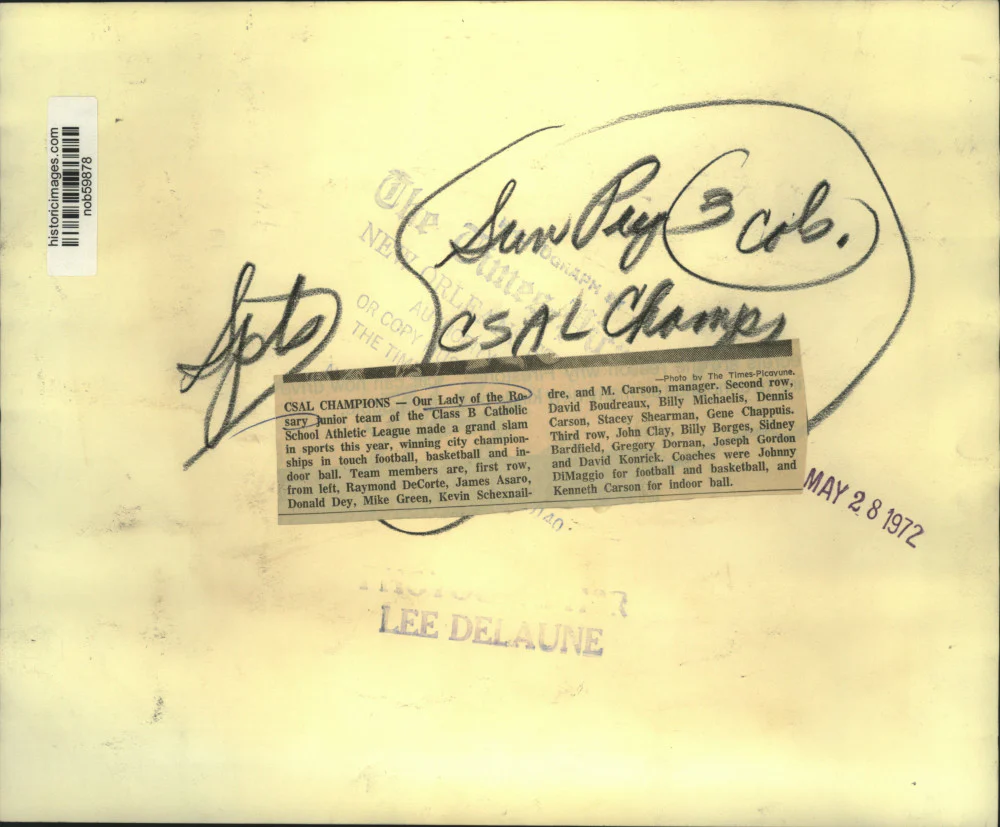 historicimages.com
nob59878
The Times
NEW ORLE
OGRAPH
AU
OR COPY
THE TIM
Sun Pig 3 cols.
Spts
CSAL Champs
—Photo by The Times-Picayune.
CSAL CHAMPIONS — Our Lady of the Ro-
sary junior team of the Class B Catholic
School Athletic League made a grand slam
in sports this year, winning city champion-
ships in touch football, basketball and in-
door ball. Team members are, first row,
from left, Raymond DeCorte, James Asaro,
Donald Dey, Mike Green, Kevin Schexnail-
dre, and M. Carson, manager. Second row,
David Boudreaux, Billy Michaelis, Dennis
Carson, Stacey Shearman, Gene Chappuis.
Third row, John Clay, Billy Borges, Sidney
Bardfield, Gregory Dornan, Joseph Gordon
and David Konrick. Coaches were Johnny
DiMaggio for football and basketball, and
Kenneth Carson for indoor ball.
MAY 28 1972
LEE DELAUNE